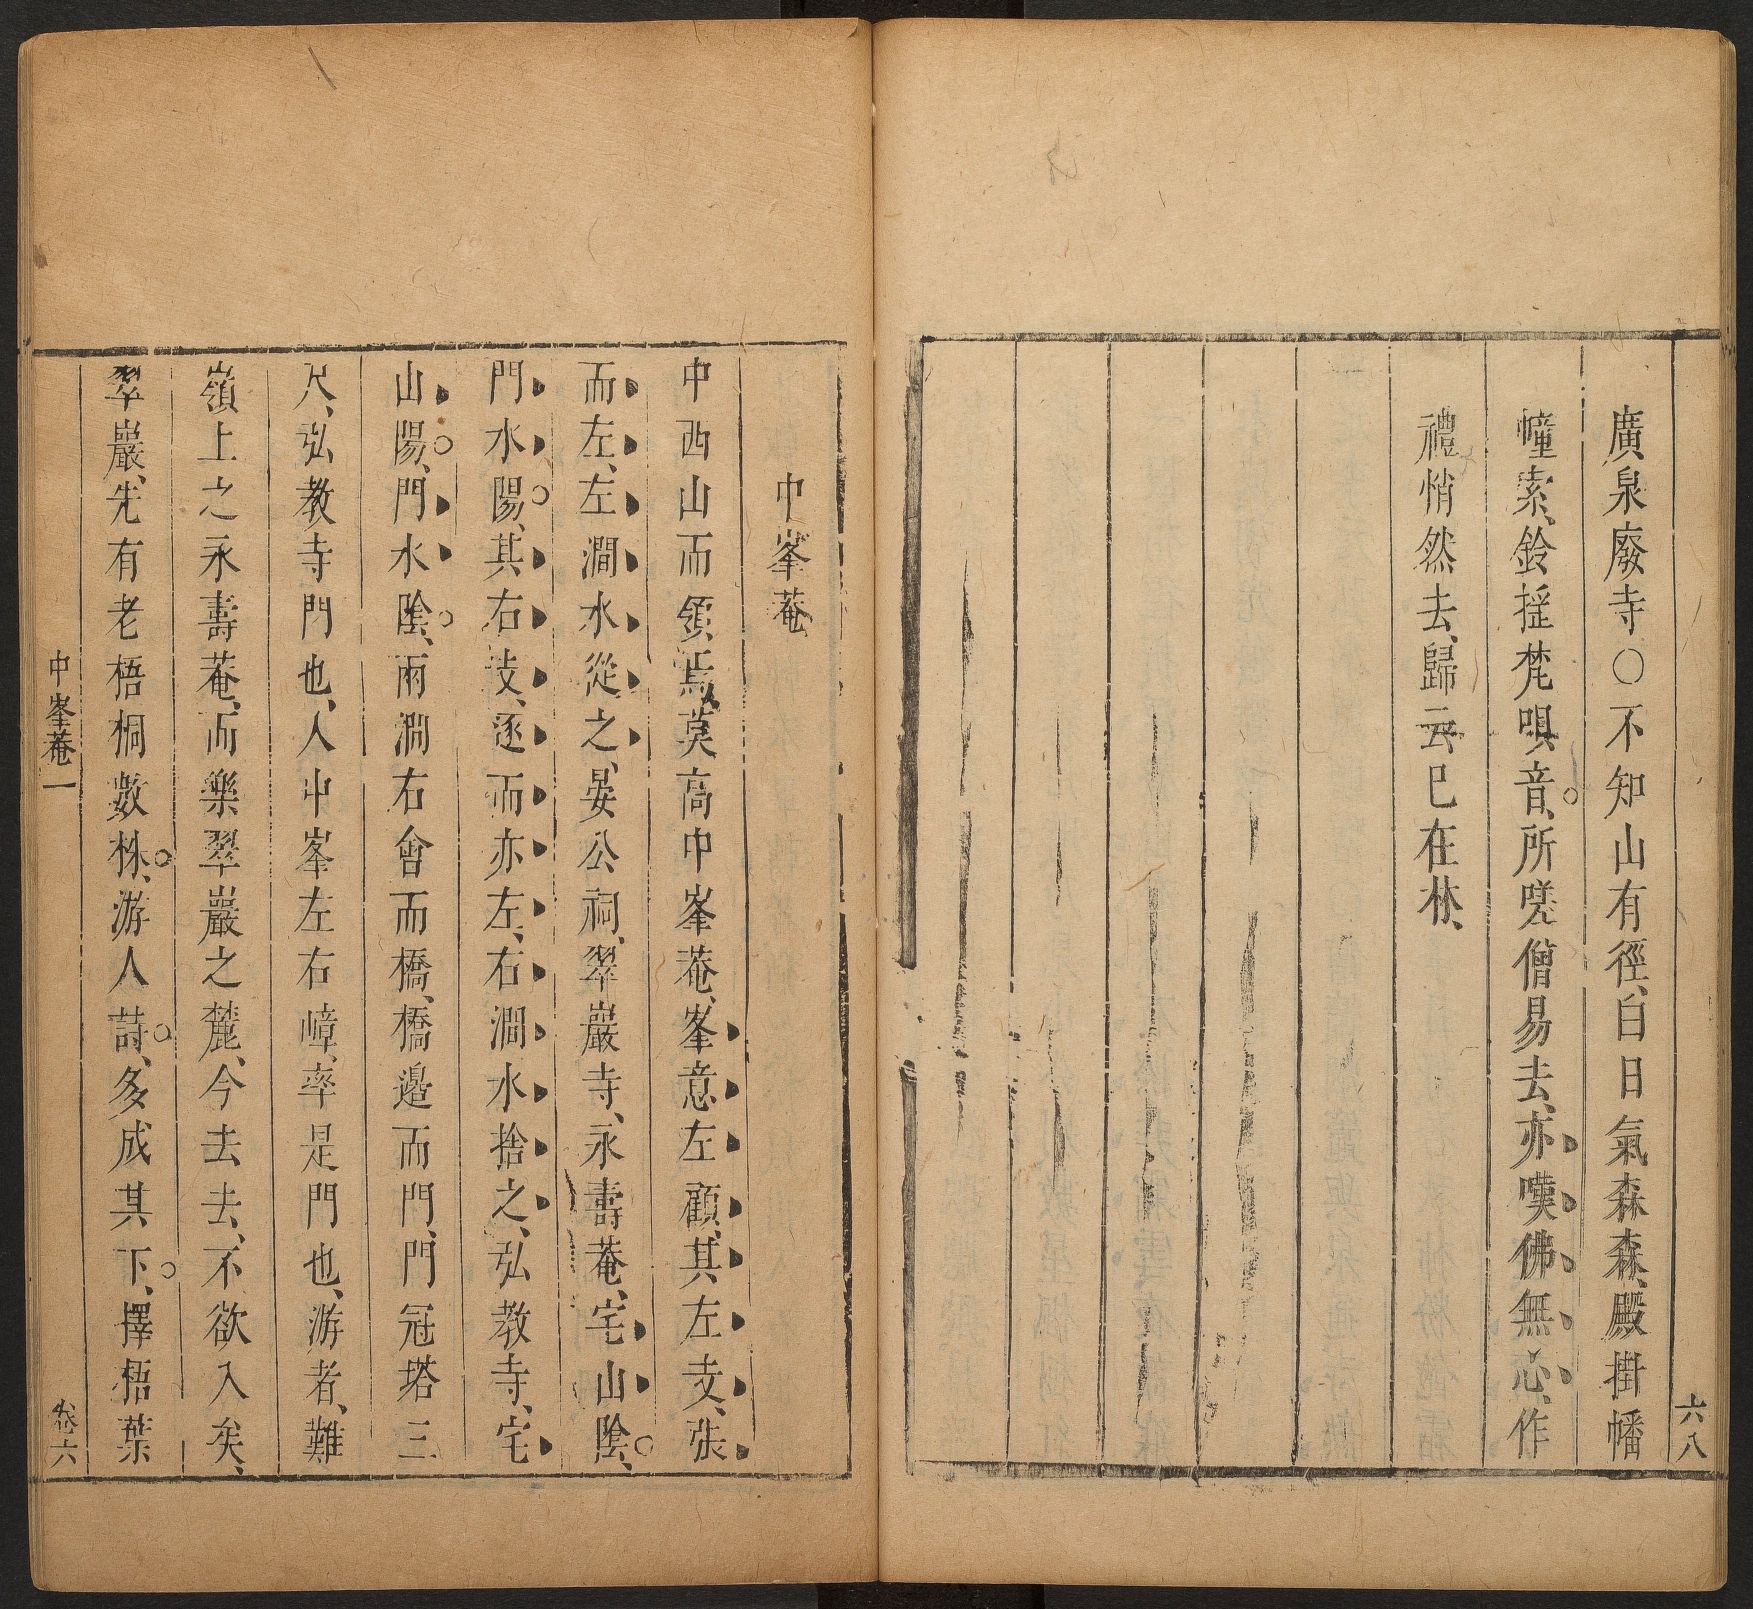 六八
廣泉廢寺○不知山有徑、白日氣森森、殿掛幡
幢索、鈴揺梵唄音、所嗟僧易去、亦嘆佛無心、作
禮悄然去、歸云已在林、
中峯菴
中西山而領焉、莫高中峯菴、峯意左顧、其左支、張
而左、左澗水從之、晏公祠、翠巖寺、永壽菴、宅山陰、
門水陽、其右支、逐而亦左、右澗水捨之、弘教寺、宅
山陽、門水陰、兩澗右會而橋、橋邉而門、門冠塔三
尺、弘教寺門也、人中峯左右嶂、率是門也、游者、難
嶺上之永壽菴、而樂翠巖之麓、今去去、不欲入矣、
翠巖、先有老梧桐數株、游人詩、多成其下、擇梧葉
中峯菴一
卷六